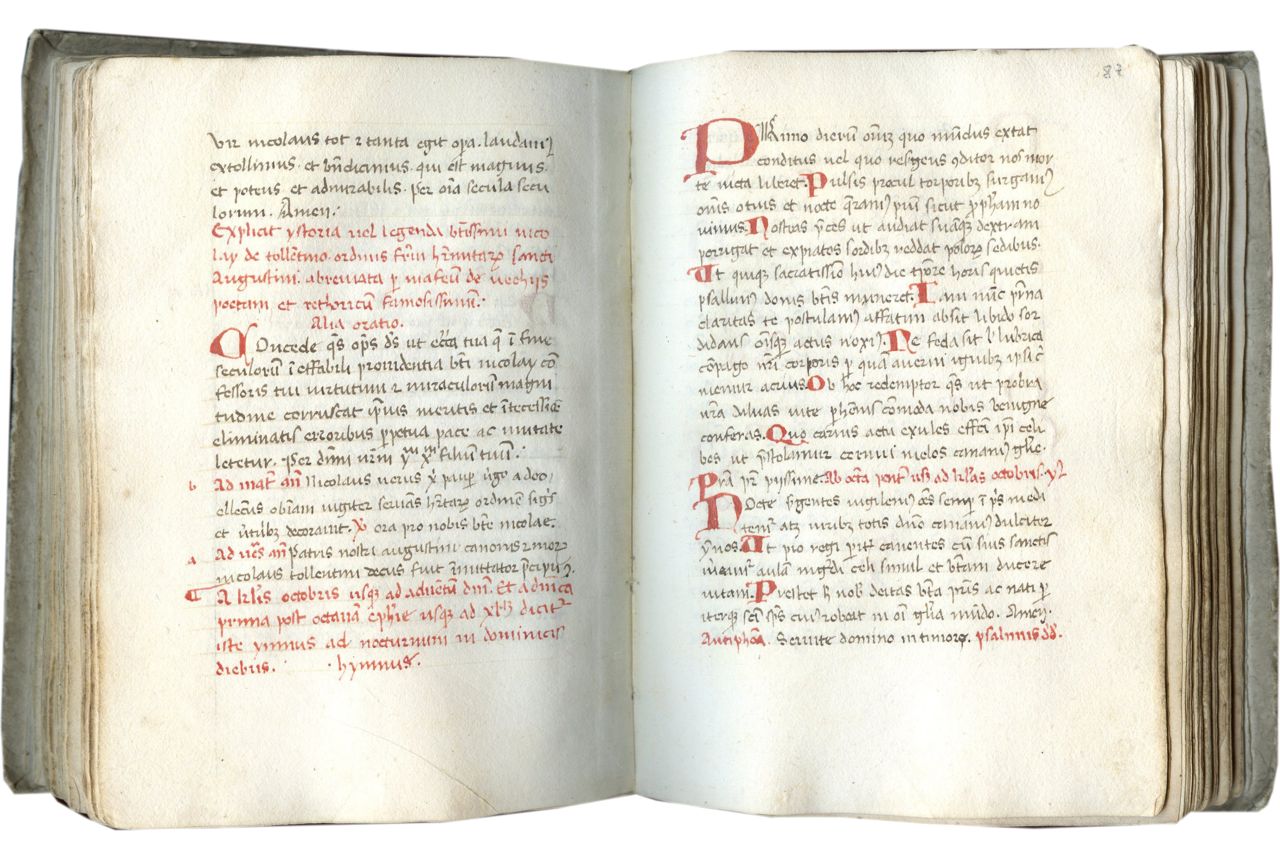 Vir nicolaus tot ⁊ tanta egit opa. laudam᷒
extollimus. et bn̄dicimus. qui est magnus.
et potens et admirabilis. Per oīa secula secu
lorum. Amen.
Explicit ystoria vel legenda btīssimi nico
lay de tollētino ordinis fr̄m hr̄mitarꝫ sancti
Augustini. abreviata ꝑ mafeum de vechijs
poetam et rethoricum famosissimum.
Alia oratio.
Concede qs̄ ops̄ ds̄ ut ecc̄a tua q̄ ī fine
seculorum ī effabili providentia bt̄i nicolay cō
fessoris tui virtutum ⁊ miraculorum magni
tudine corruscat ip̄ius meritis et ītercessiōe
eliminatis erroribus ꝑpetua pace ac unitate
letetur. Per dnm̄ nr̄m yhm̄ xpm̄ filium tuum.
b Ad mat̄. an̄. Nicolaus verus x̄ pauꝑ v̄go a deo
ellectus obīam iugiter servās hr̄itarꝫ ordinē sigīs
et v̄tutibꝫ decoravit. ℣ ora pro nobis bt̄e nicolae.
a Ad ves̄ an̄ Patris nostri augustini canonis ⁊ mor
nicolaus tollentini decus fuit īmitator p̄cipuꝰ.
A kl̄is octobris usqꝫ ad adventum dnī. Et a dn̄ica
prima post octavam ephīe usqꝫ ad xlm̄ dicitr̄
iste ymnus ad nocturnum in dominicis
diebus. hymnus.
87
Primo dierū oīuꝫ quo mūdus extat
conditus vel quo resurgens ꝯditor nos mor
te victa liberet. Pulsis procul torporibꝫ surgamꝰ
om̄s otius et nocte q̄ramꝰ piū sicut ꝓph̄am no
vimus. Nostras p̄ces ut audiat suāqꝫ dextram
porrigat et expiatos sordibꝫ reddat polorꝫ sedibus.
Ut quiqꝫ sacratissīo huiꝰ diei tp̄ore horis quietis
psallimꝰ donis bt̄is muneret. Iam nūc pr̄na
claritas te postulamꝰ affatim absit libido sor
didans oīsqꝫ actus noxiꝰ. Ne feda sit vl̄ lubrica
cōpago nr̄i corporis ꝑ quā averni ignibꝫ ipsi c̄
memur acrius. Ob hoc redemptor qs̄ ut probra
nr̄a diluas vite ꝑhēnis cōmoda nobis benigne
conferas. Quo carnis actu exules effcī ipī celi
bes ut p̄stolamur cernui melos canamꝰ gl̄ie.
Pr̄a pr̄ pijssime. Ab octa pent̄ usqꝫ ad kl̄as octobris. y᷒
Nocte surgentes vigilemꝰ oēs semꝑ ī ps̄ medi
temꝰ atqꝫ viribꝫ totis dn̄o canamꝰ dulciter
ymnos. Ut pio regi pit̄ canentes cū suis sanctis
mereamur aulā īgredi celi simul et bt̄am ducere
vitam. Prestet h̄ nob̄ deitas bt̄a pr̄is ac nati pꝑ
iterqꝫ scī sp̄s cuiꝰ reboat in oī gl̄ia mūdo. Amen.
Antiphōa. Servite domino in timore. psalmus dd̄.